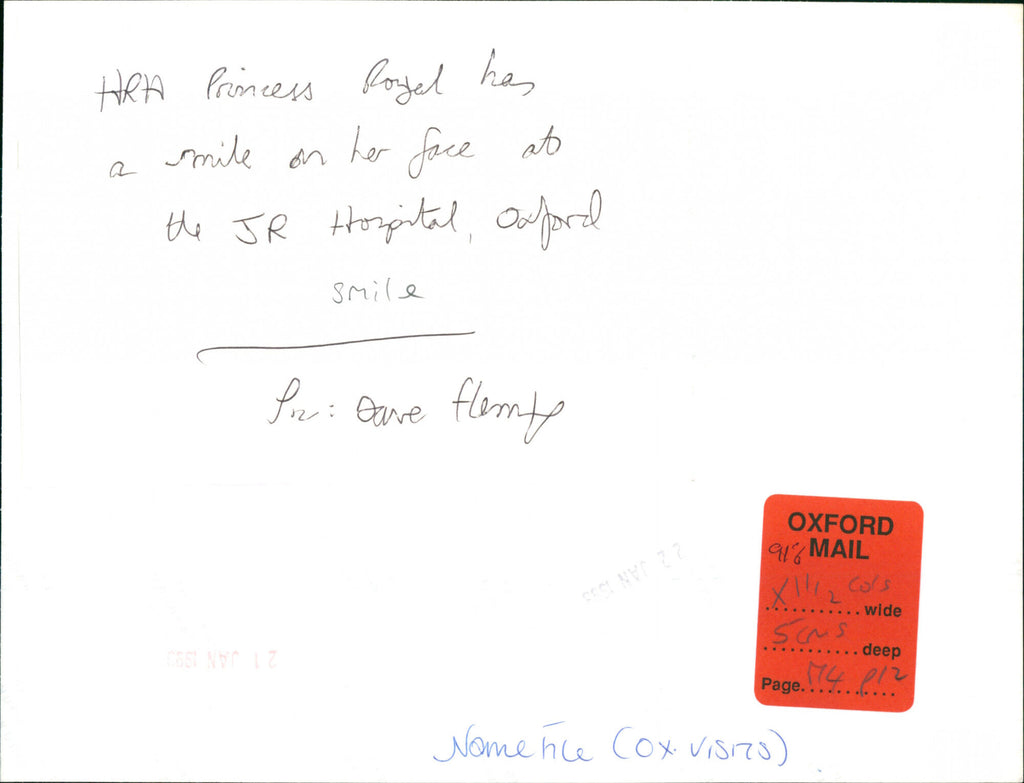 HRH Princess Royal has
a smile on her face at
the JR Hospital, Oxford
smile
Pic: Dave Fleming
OXFORD
MAIL
X 1 1/2 cols
..........wide
5cms
..........deep
Page.......... p12
22 JAN 1993
21 JAN 1993
Name File (OX. VISITS)